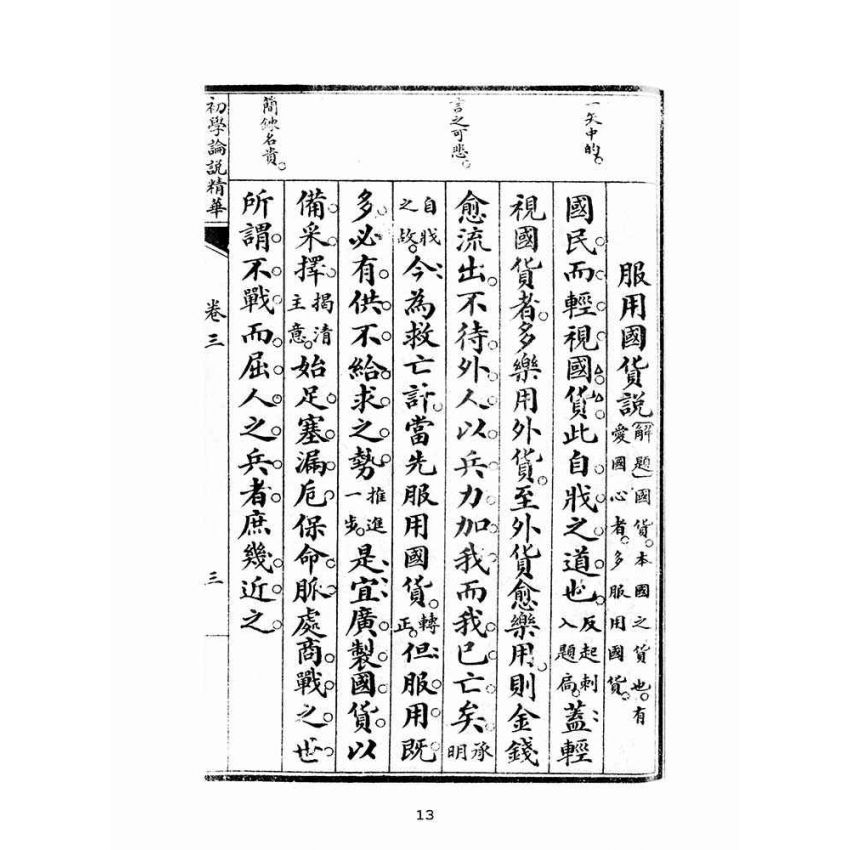 一矢中的。
言之可悲。
簡鍊名貴。
服用國貨說〔解題〕國貨。本國之貨也。有愛國心者。多服用國貨。
國民而輕視國貨此自戕之道也反起刺入題扃。蓋輕
視國貨者。多樂用外貨。至外貨愈樂用。則金錢
愈流出。不待外人以兵力加我而我已亡矣。承明
自戕之故。今為救亡計。當先服用國貨。轉正。但服用既
多必有供不給求之勢推進一步。是宜廣製國貨以
備采擇揭清主意。始足塞漏卮保命脈處商戰之世
所謂不戰而屈人之兵者庶幾近之
初學論說精華
卷三
三
13